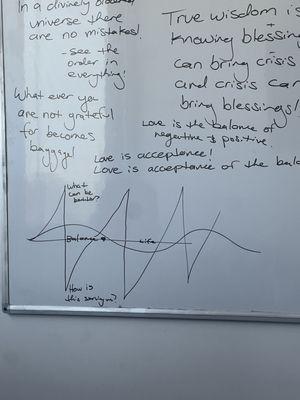 In a divinely ordered
universe there
are no mistakes!
- see the
order in
everything!
What ever you
are not grateful
for becomes
baggage!
True wisdom is
knowing blessing
can bring crisis
and crisis can
bring blessings!
Love is the balance of
negative & positive.
Love is acceptance!
Love is acceptance of the bala
What
can be
better?
Balance
Life
How is
this serving me?